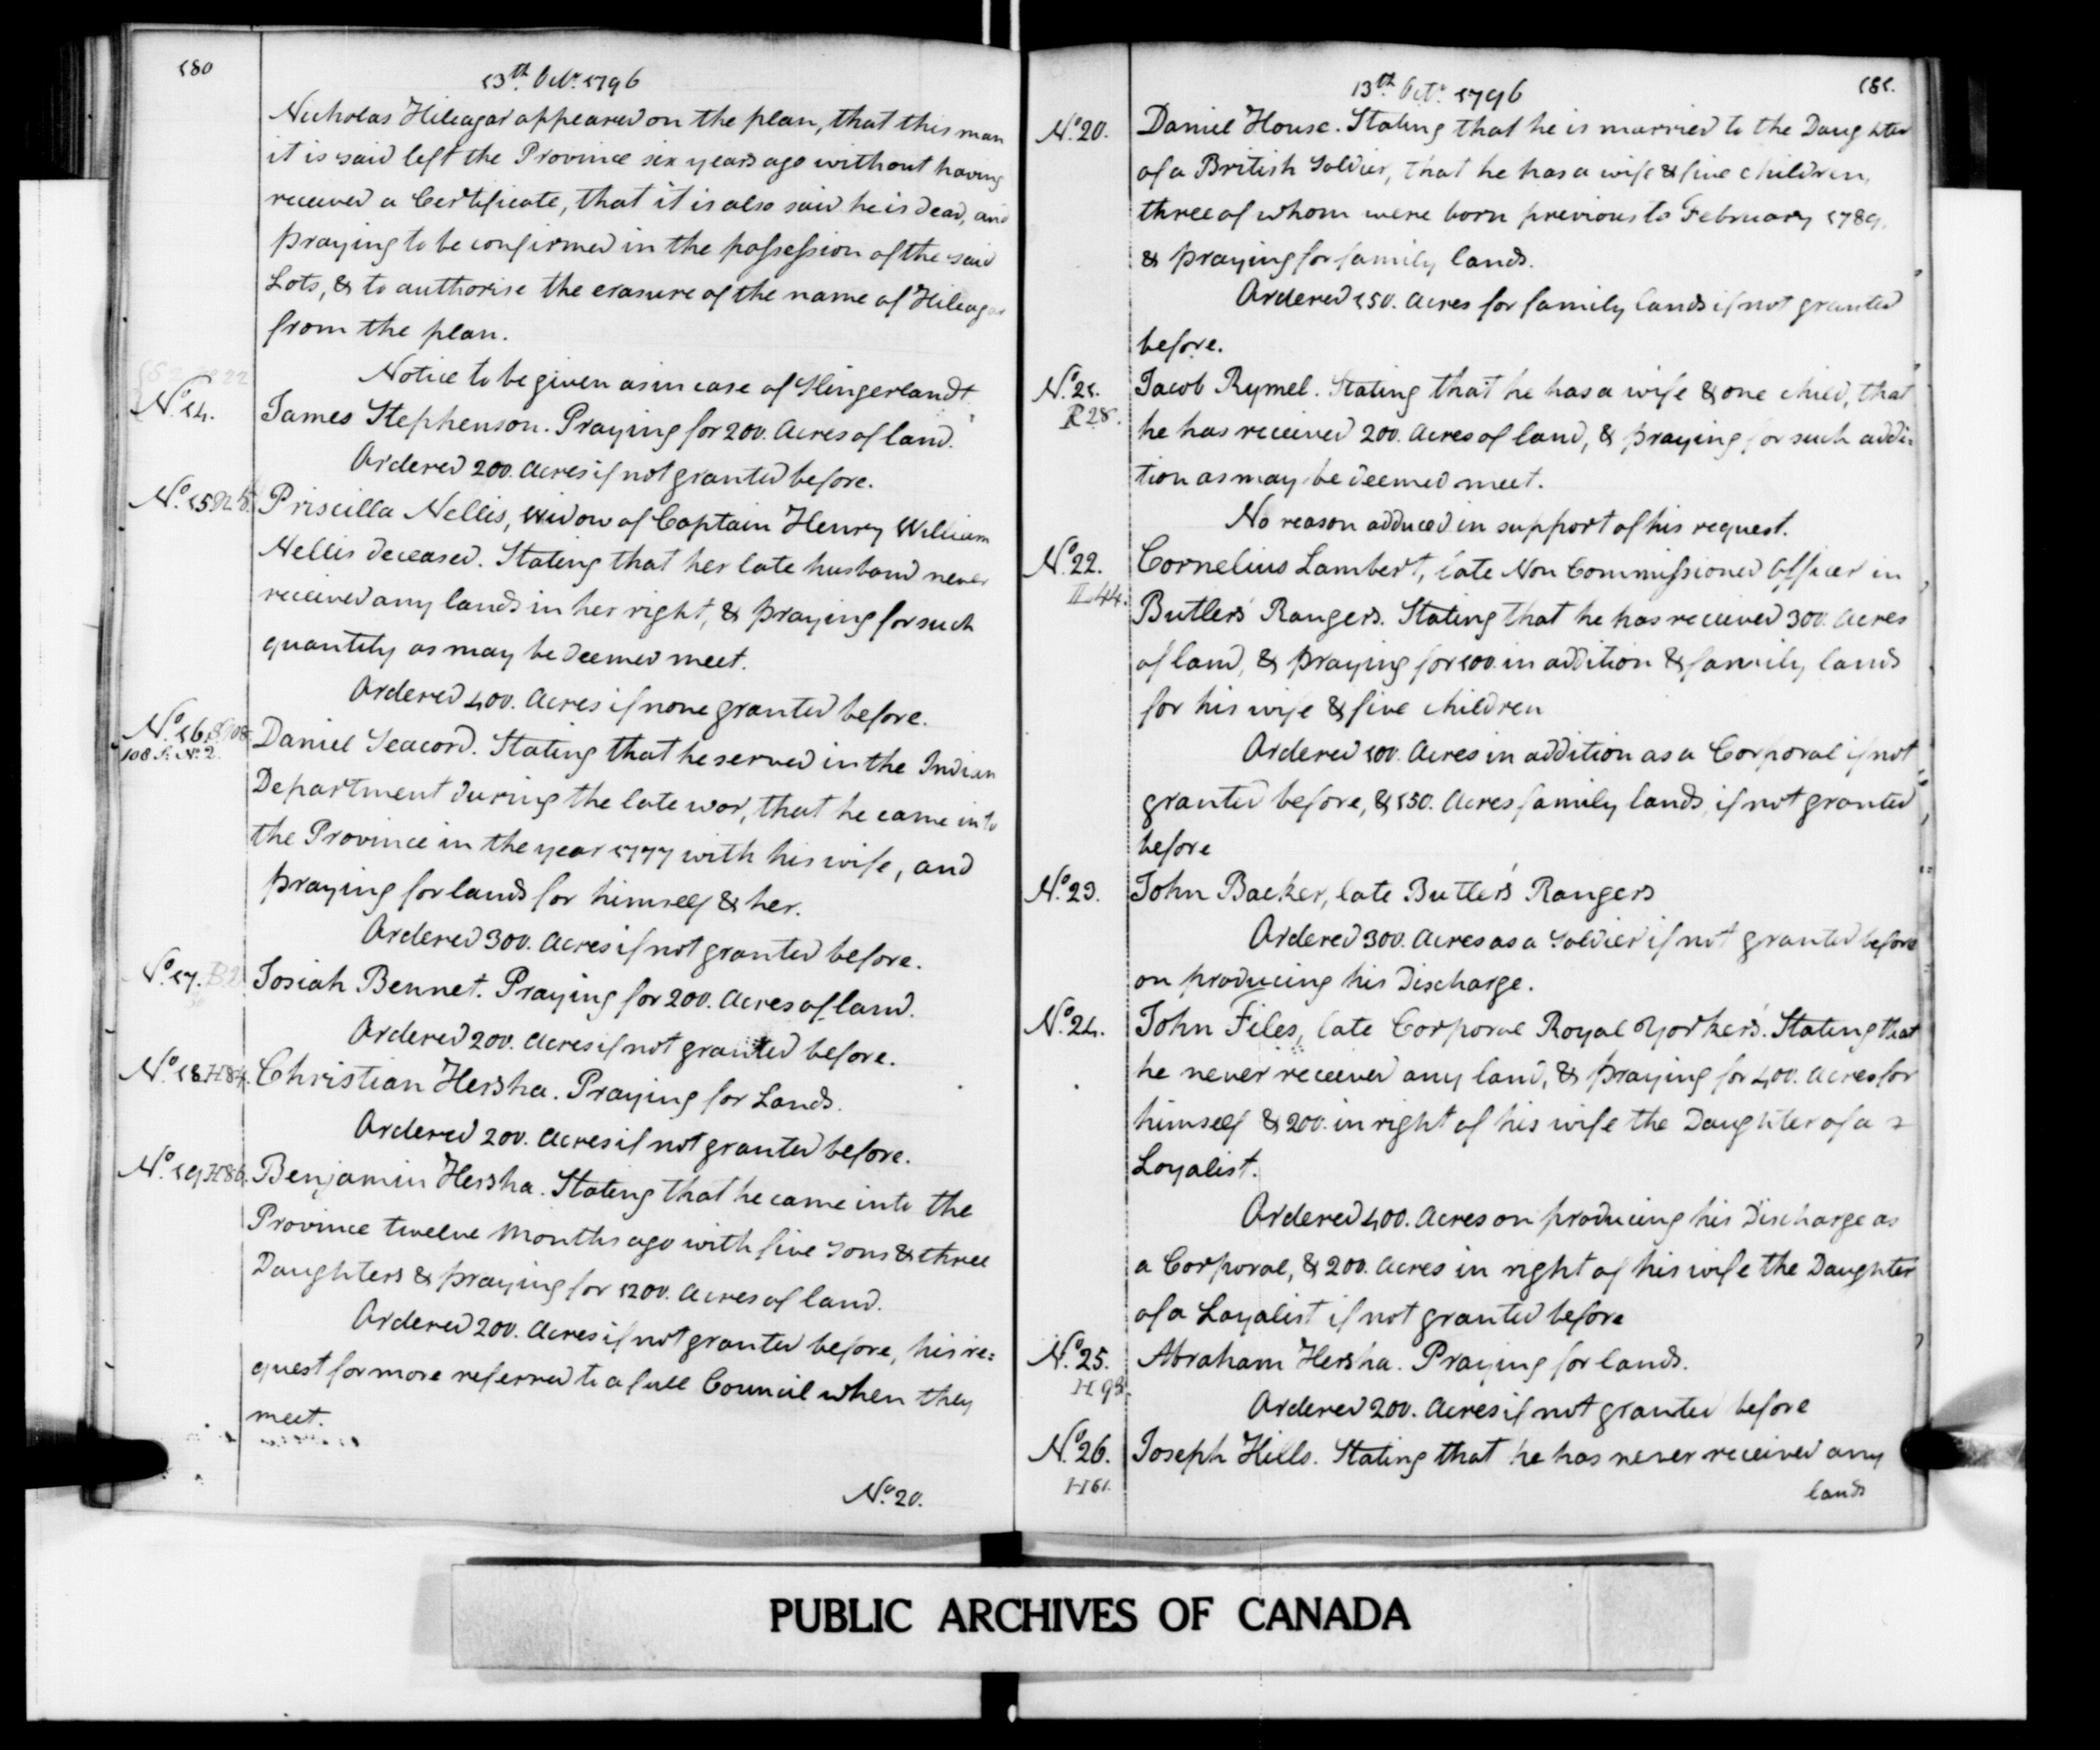 180
13th Octr. 1796
Nicholas Hileagar appeared on the plan, that this man
it is said left the Province six years ago without having
received a Certificate, that it is also said he is dead, and
praying to be confirmed in the possession of the said
Lots, & to authorise the erasure of the name of Hileagar
from the plan.
Notice to be given as in case of Slingerlandt
No. 14. James Stephenson. Praying for 200. Acres of land.
Ordered 200. Acres if not granted before.
No. 15 Priscilla Nellis, Widow of Captain Henry William
Nellis deceased. Stating that her late husband never
received any lands in her right, & praying for such
quantity as may be deemed meet.
Ordered 400. Acres if none granted before.
No. 16. Daniel Seacord. Stating that he served in the Indian
Department during the late war, that he came into
the Province in the year 1777 with his wife, and
praying for lands for himself & her.
Ordered 300. Acres if not granted before.
No. 17. Josiah Bennet. Praying for 200. Acres of land.
Ordered 200. Acres if not granted before.
No. 18 H84. Christian Hersha. Praying for Lands.
Ordered 200. Acres if not granted before.
No. 19 H86. Benjamin Hersha. Stating that he came into the
Province twelve Months ago with five Sons & three
Daughters & praying for 1200. Acres of land.
Ordered 200. Acres if not granted before, his re=
quest for more referred to a full Council when they
meet.
No. 20.
13th Octr. 1796
181.
No. 20. Daniel House. Stating that he is married to the Daughter
of a British Soldier, that he has a wife & five children,
three of whom were born previous to February 1789,
& praying for family lands.
Ordered 150. Acres for family lands if not granted
before.
No. 21. Jacob Rymel. Stating that he has a wife & one child, that
R 28. he has received 200. Acres of land, & praying for such addi=
tion as may be deemed meet.
No reason adduced in support of his request.
No. 22. Cornelius Lambert, late Non Commissioned Officer in
44. Butler's Rangers. Stating that he has received 300. Acres
of land, & praying for 100. in addition & family lands
for his wife & five children
Ordered 100. Acres in addition as a Corporal if not
granted before, & 150. Acres family lands, if not granted
before
No. 23. John Backer, late Butler's Rangers
Ordered 300. Acres as a Soldier if not granted before
on producing his Discharge.
No. 24. John Files, late Corporal Royal Yorkers. Stating that
he never received any land, & praying for 400. Acres for
himself & 200. in right of his wife the Daughter of a
Loyalist.
Ordered 400. Acres on producing his Discharge as
a Corporal, & 200. Acres in right of his wife the Daughter
of a Loyalist if not granted before
No. 25. Abraham Hersha. Praying for lands.
Ordered 200. Acres if not granted before
No. 26. Joseph Hills. Stating that he has never received any
H61. lands
PUBLIC ARCHIVES OF CANADA